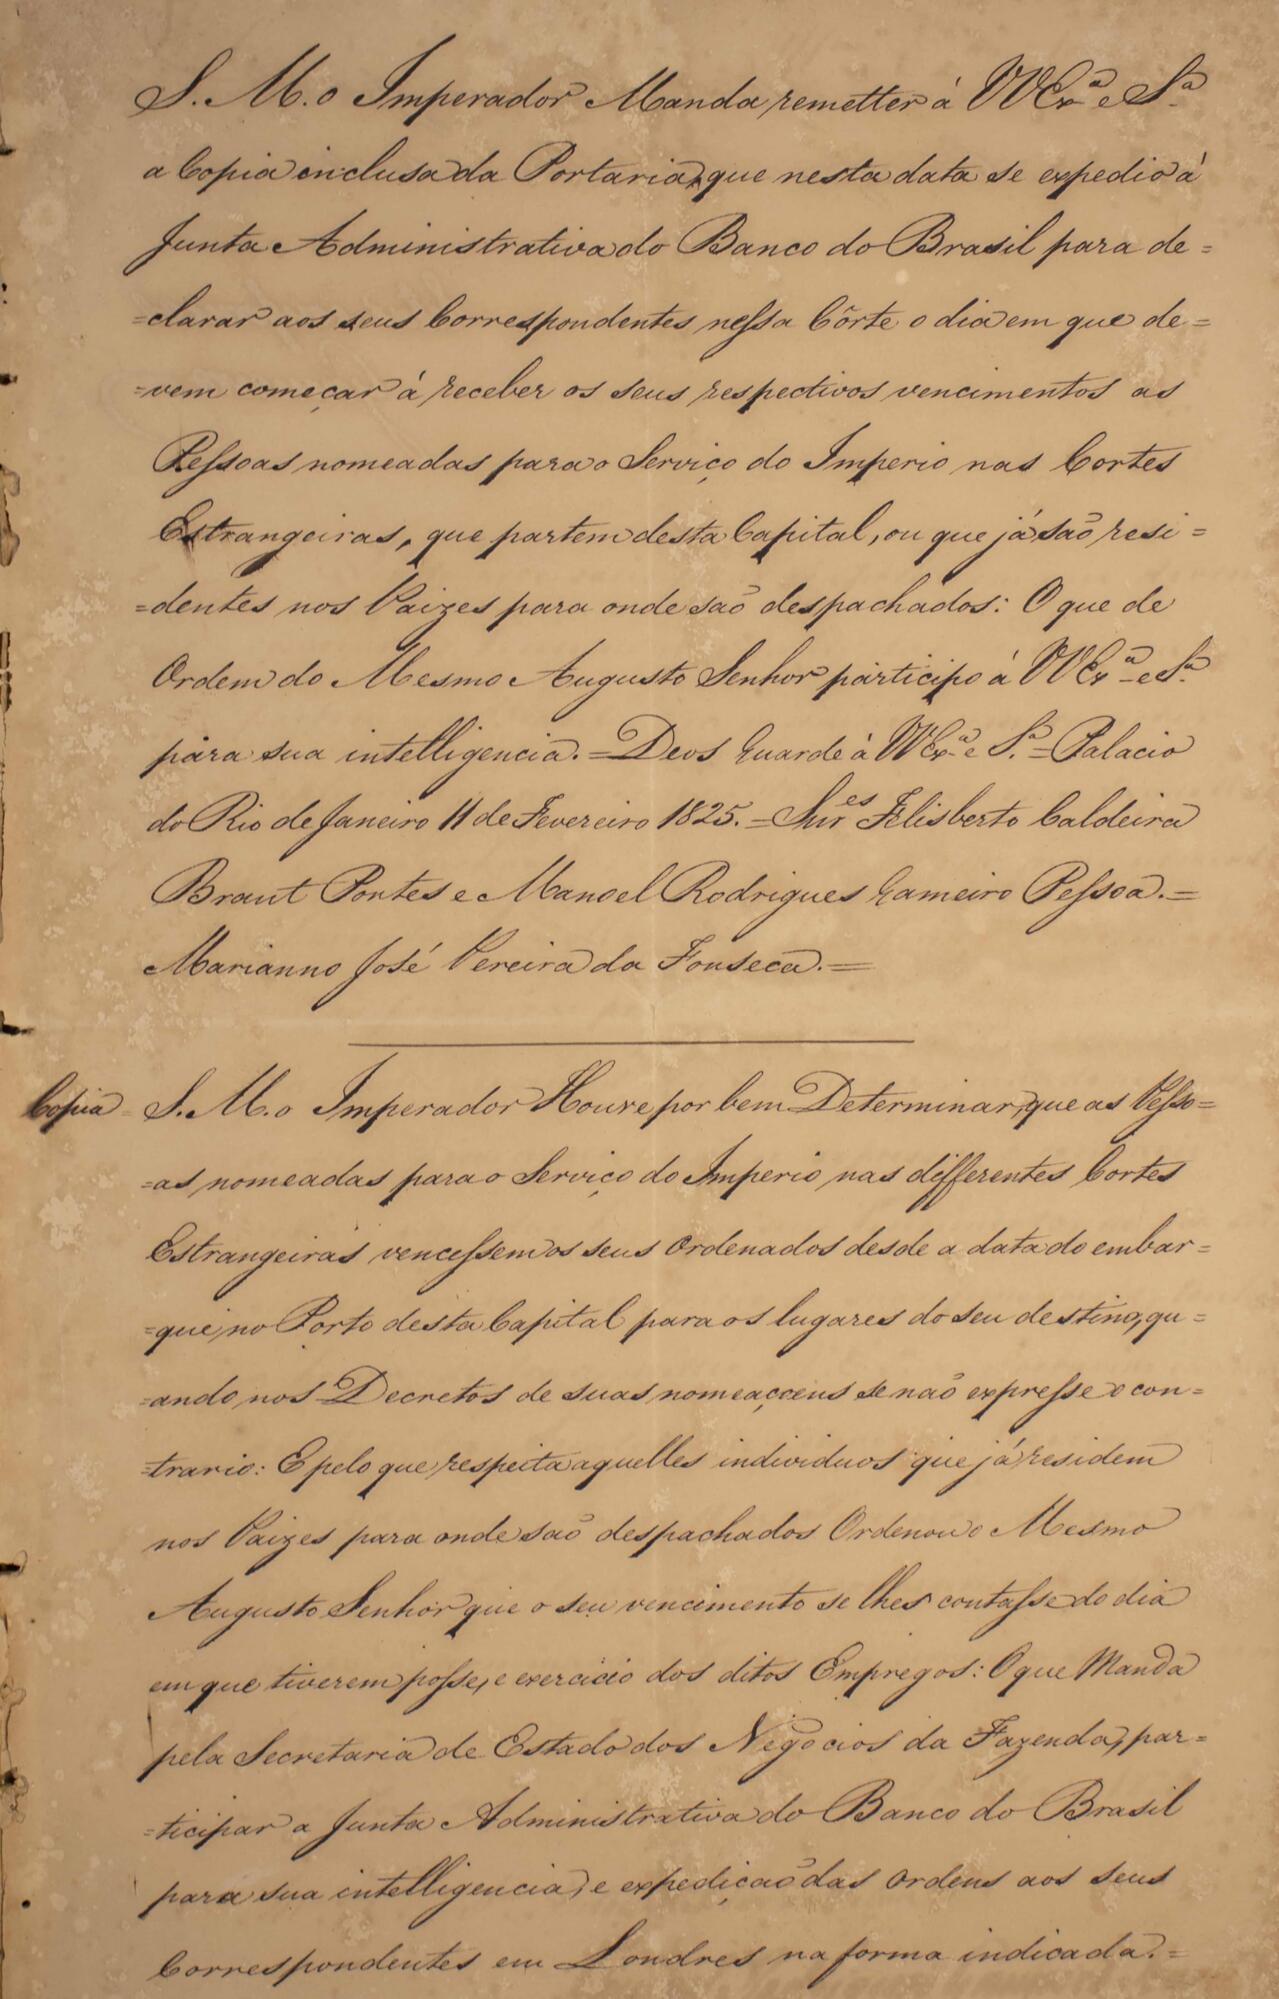 S. M. o Imperador Manda remetter á VV Exª e Sª
a Copia inclusa da Portaria, que nesta data se expedio á
Junta Administrativa do Banco do Brasil para de=
=clarar aos seus Correspondentes nessa Côrte o dia em que de=
=vem começar á receber os seus respectivos vencimentos as
Pessoas nomeadas para o Serviço do Imperio nas Cortes
Estrangeiras, que partem desta Capital, ou que já são resi=
=dentes nos Paizes para onde são despachados: O que de
Ordem do Mesmo Augusto Senhor participo á VV Exª e Sª
para sua intelligencia. = Deos Guarde á VV Exª e Sª = Palacio
do Rio de Janeiro 11 de Fevereiro 1825. = Snr.es Felisberto Caldeira
Brant Pontes e Manoel Rodrigues Gameiro Pessoa. =
Marianno José Pereira da Fonseca. =
Copia = S. M. o Imperador Houve por bem Determinar, que as Pesso=
=as nomeadas para o Serviço do Imperio nas differentes Cortes
Estrangeiras vencessem os seus Ordenados desde a data do embar=
=que no Porto desta Capital para os lugares do seu destino, qu=
=ando nos Decretos de suas nomeaçoens se não expresse o con=
=trario: E pelo que respeita aquelles individuos que já residem
nos Paizes para onde são despachados Ordenou o Mesmo
Augusto Senhor que o seu vencimento se lhes contasse do dia
em que tiverem posse, e exercicio dos ditos Empregos: O que Manda
pela Secretaria de Estado dos Negocios da Fazenda, par=
=ticipar a Junta Administrativa do Banco do Brasil
para sua intelligencia, e expedição das Ordens aos seus
Correspondentes em Londres na forma indicada. =